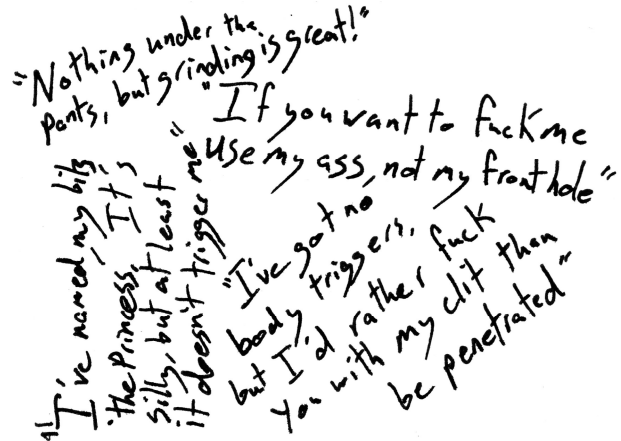 "Nothing under the
pants, but grinding is great!"
"If you want to fuck me
use my ass, not my front hole"
"I've named my bits
'the Princess,' It's
silly, but at least
it doesn't trigger me"
"I've got no
body triggers,
but I'd rather fuck
you with my clit than
be penetrated"